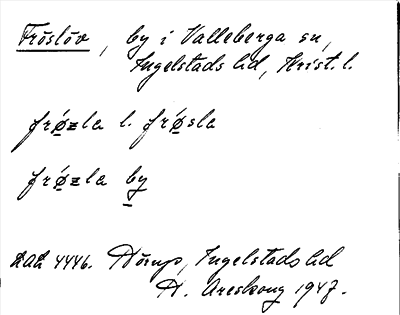 Fröslöv, by i Valleberga sn,
Ingelstads hd, Krist. l.
frøzla l. frøsla
frøzla by
4446. Hörup, Ingelstads hd
H. Areskoug 1947.